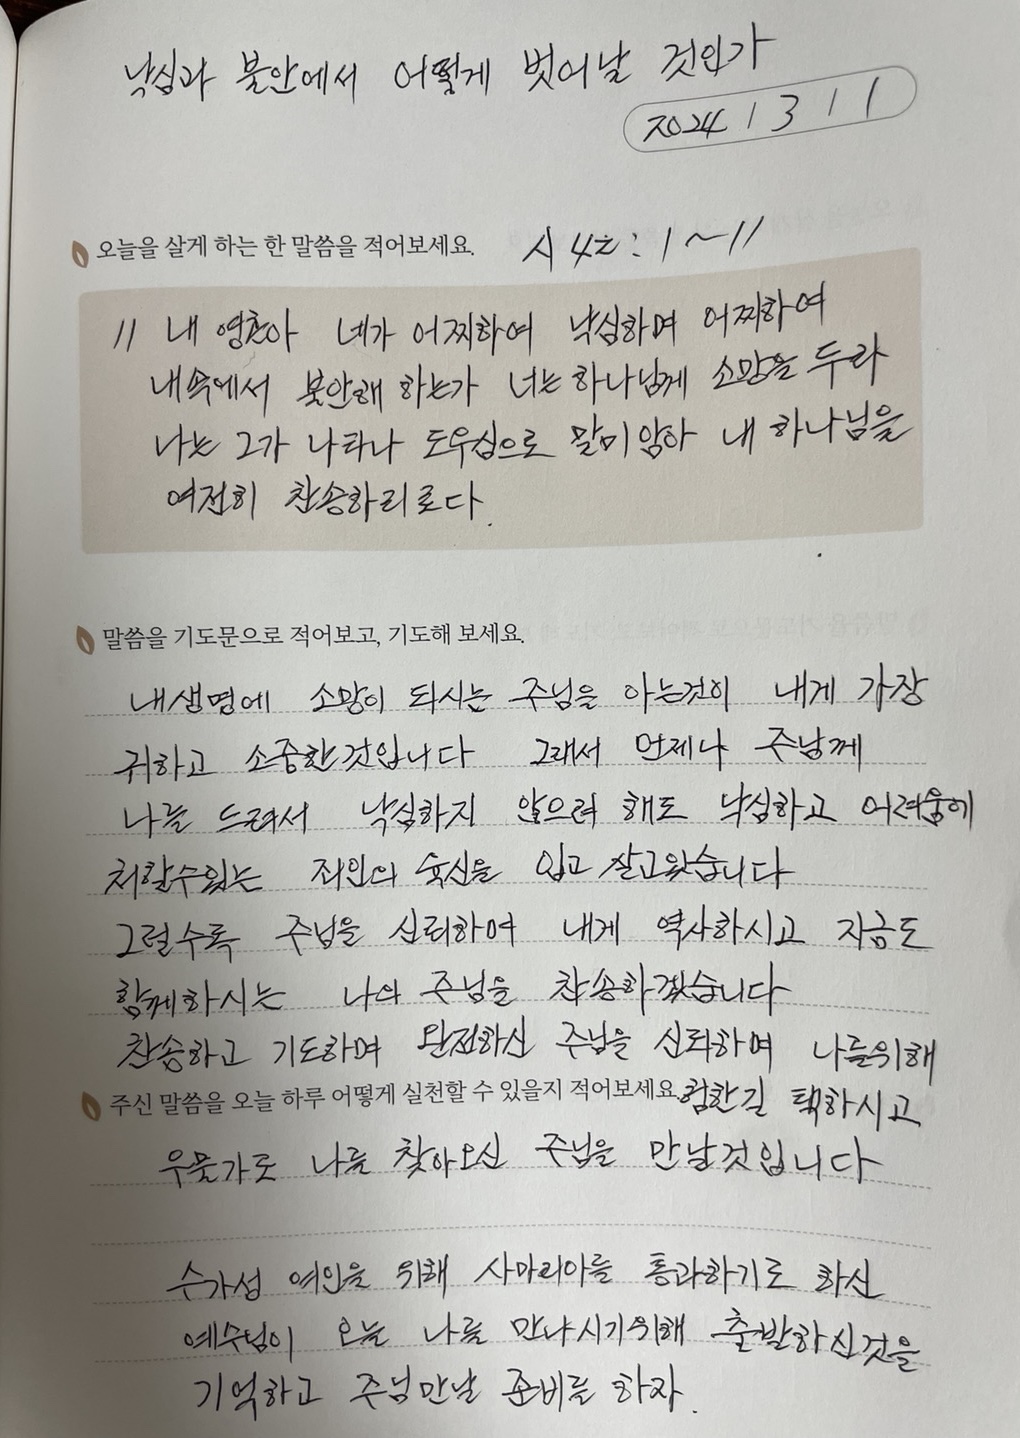 낙심과 불안에서 어떻게 벗어날 것인가
2024 / 3 / 1
오늘을 살게 하는 한 말씀을 적어보세요. 시 42: 1~11
11 내 영혼아 네가 어찌하여 낙심하며 어찌하여
내속에서 불안해 하는가 너는 하나님께 소망을 두라
나는 그가 나타나 도우심으로 말미암아 내 하나님을
여전히 찬송하리로다.
말씀을 기도문으로 적어보고, 기도해 보세요.
내생명에 소망이 되시는 주님을 아는것이 내게 가장
귀하고 소중한것입니다 그래서 언제나 주님께
나를 드려서 낙심하지 않으려 해도 낙심하고 어려움에
처할수있는 죄인의 육신을 입고 살고왔습니다
그럴수록 주님을 신뢰하여 내게 역사하시고 지금도
함께하시는 나의 주님을 찬송하겠습니다
찬송하고 기도하며 완전하신 주님을 신뢰하며 나를위해
주신 말씀을 오늘 하루 어떻게 실천할 수 있을지 적어보세요. 험한길 택하시고
우물가로 나를 찾아오신 주님을 만날것입니다
수가성 여인을 위해 사마리아를 통과하기로 하신
예수님이 오늘 나를 만나시기위해 출발하신것을
기억하고 주님만날 준비를 하자.